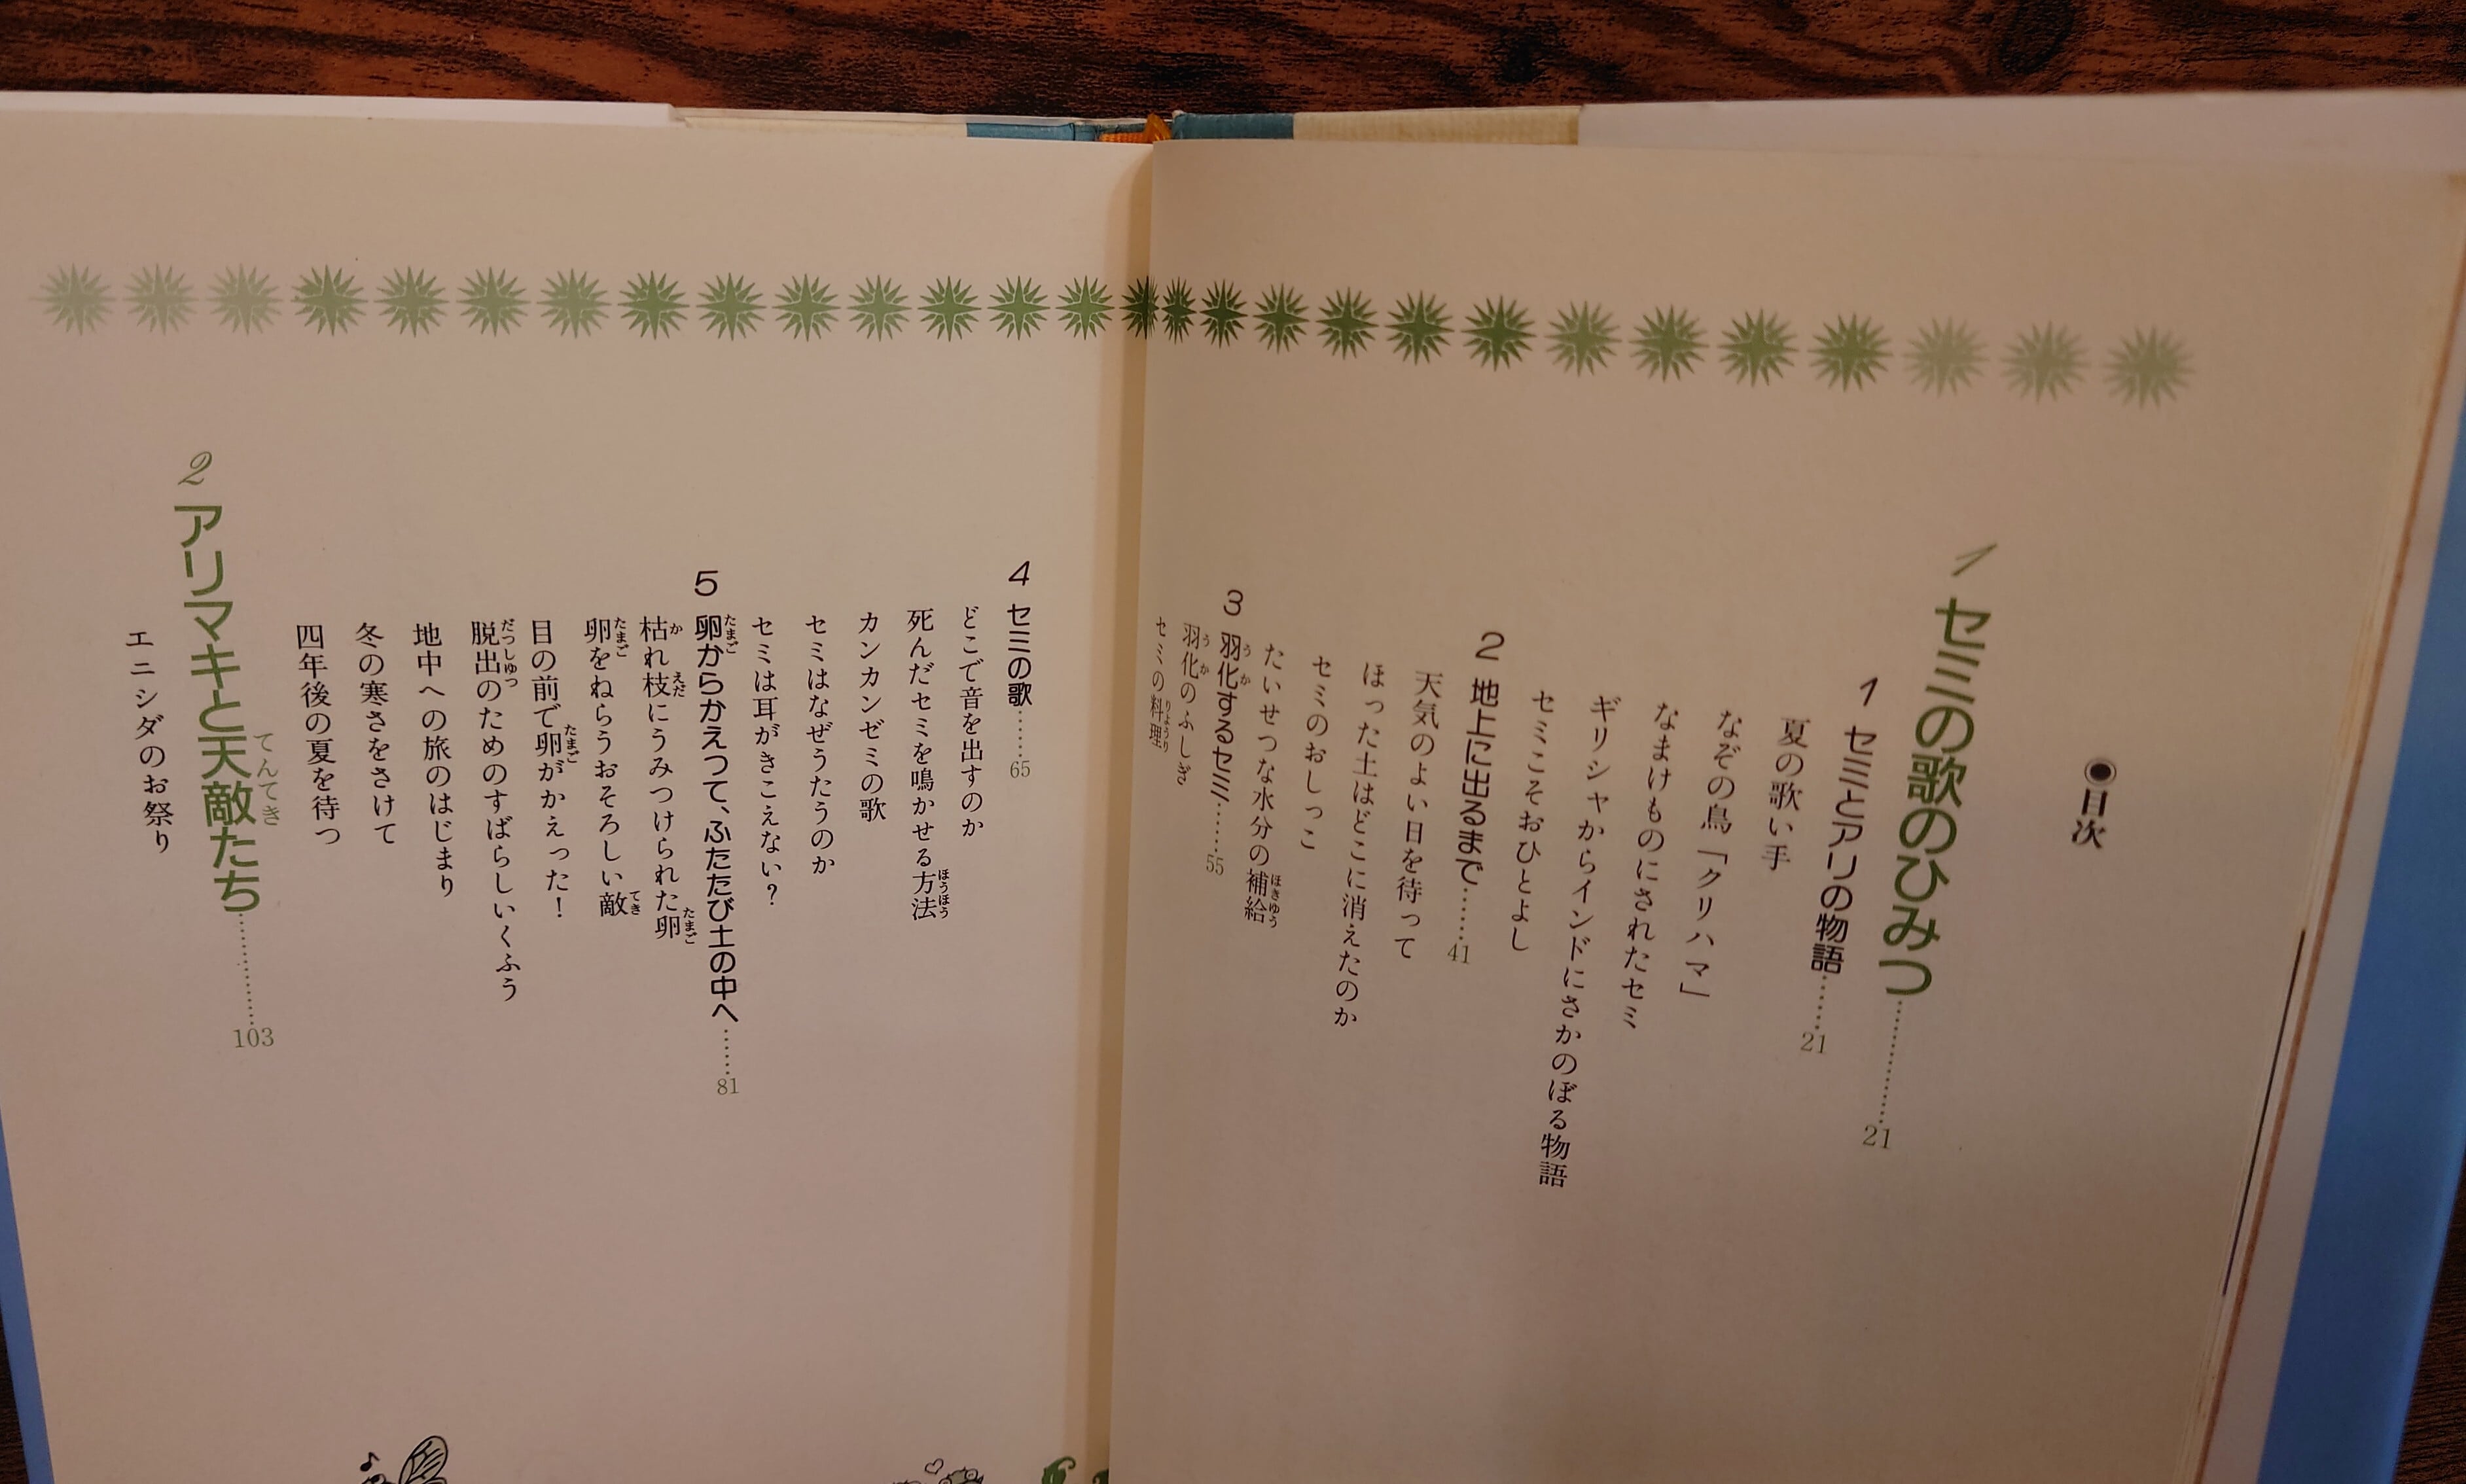 ●目次
1 セミの歌のひみつ…………21
1 セミとアリの物語……21
夏の歌い手
なぞの鳥「クリハマ」
なまけものにされたセミ
ギリシャからインドにさかのぼる物語
セミこそおひとよし
2 地上に出るまで……41
天気のよい日を待って
ほった土はどこに消えたのか
セミのおしっこ
たいせつな水分の補給
3 羽化するセミ……55
羽化のふしぎ
セミの料理
4 セミの歌……65
どこで音を出すのか
死んだセミを鳴かせる方法
カンカンゼミの歌
セミはなぜうたうのか
セミは耳がきこえない?
5 卵からかえって、ふたたび土の中へ……81
枯れ枝にうみつけられた卵
卵をねらうおそろしい敵
目の前で卵がかえった!
脱出のためのすばらしいくふう
地中への旅のはじまり
冬の寒さをさけて
四年後の夏を待つ
2 アリマキと天敵たち…………103
エニシダのお祭り